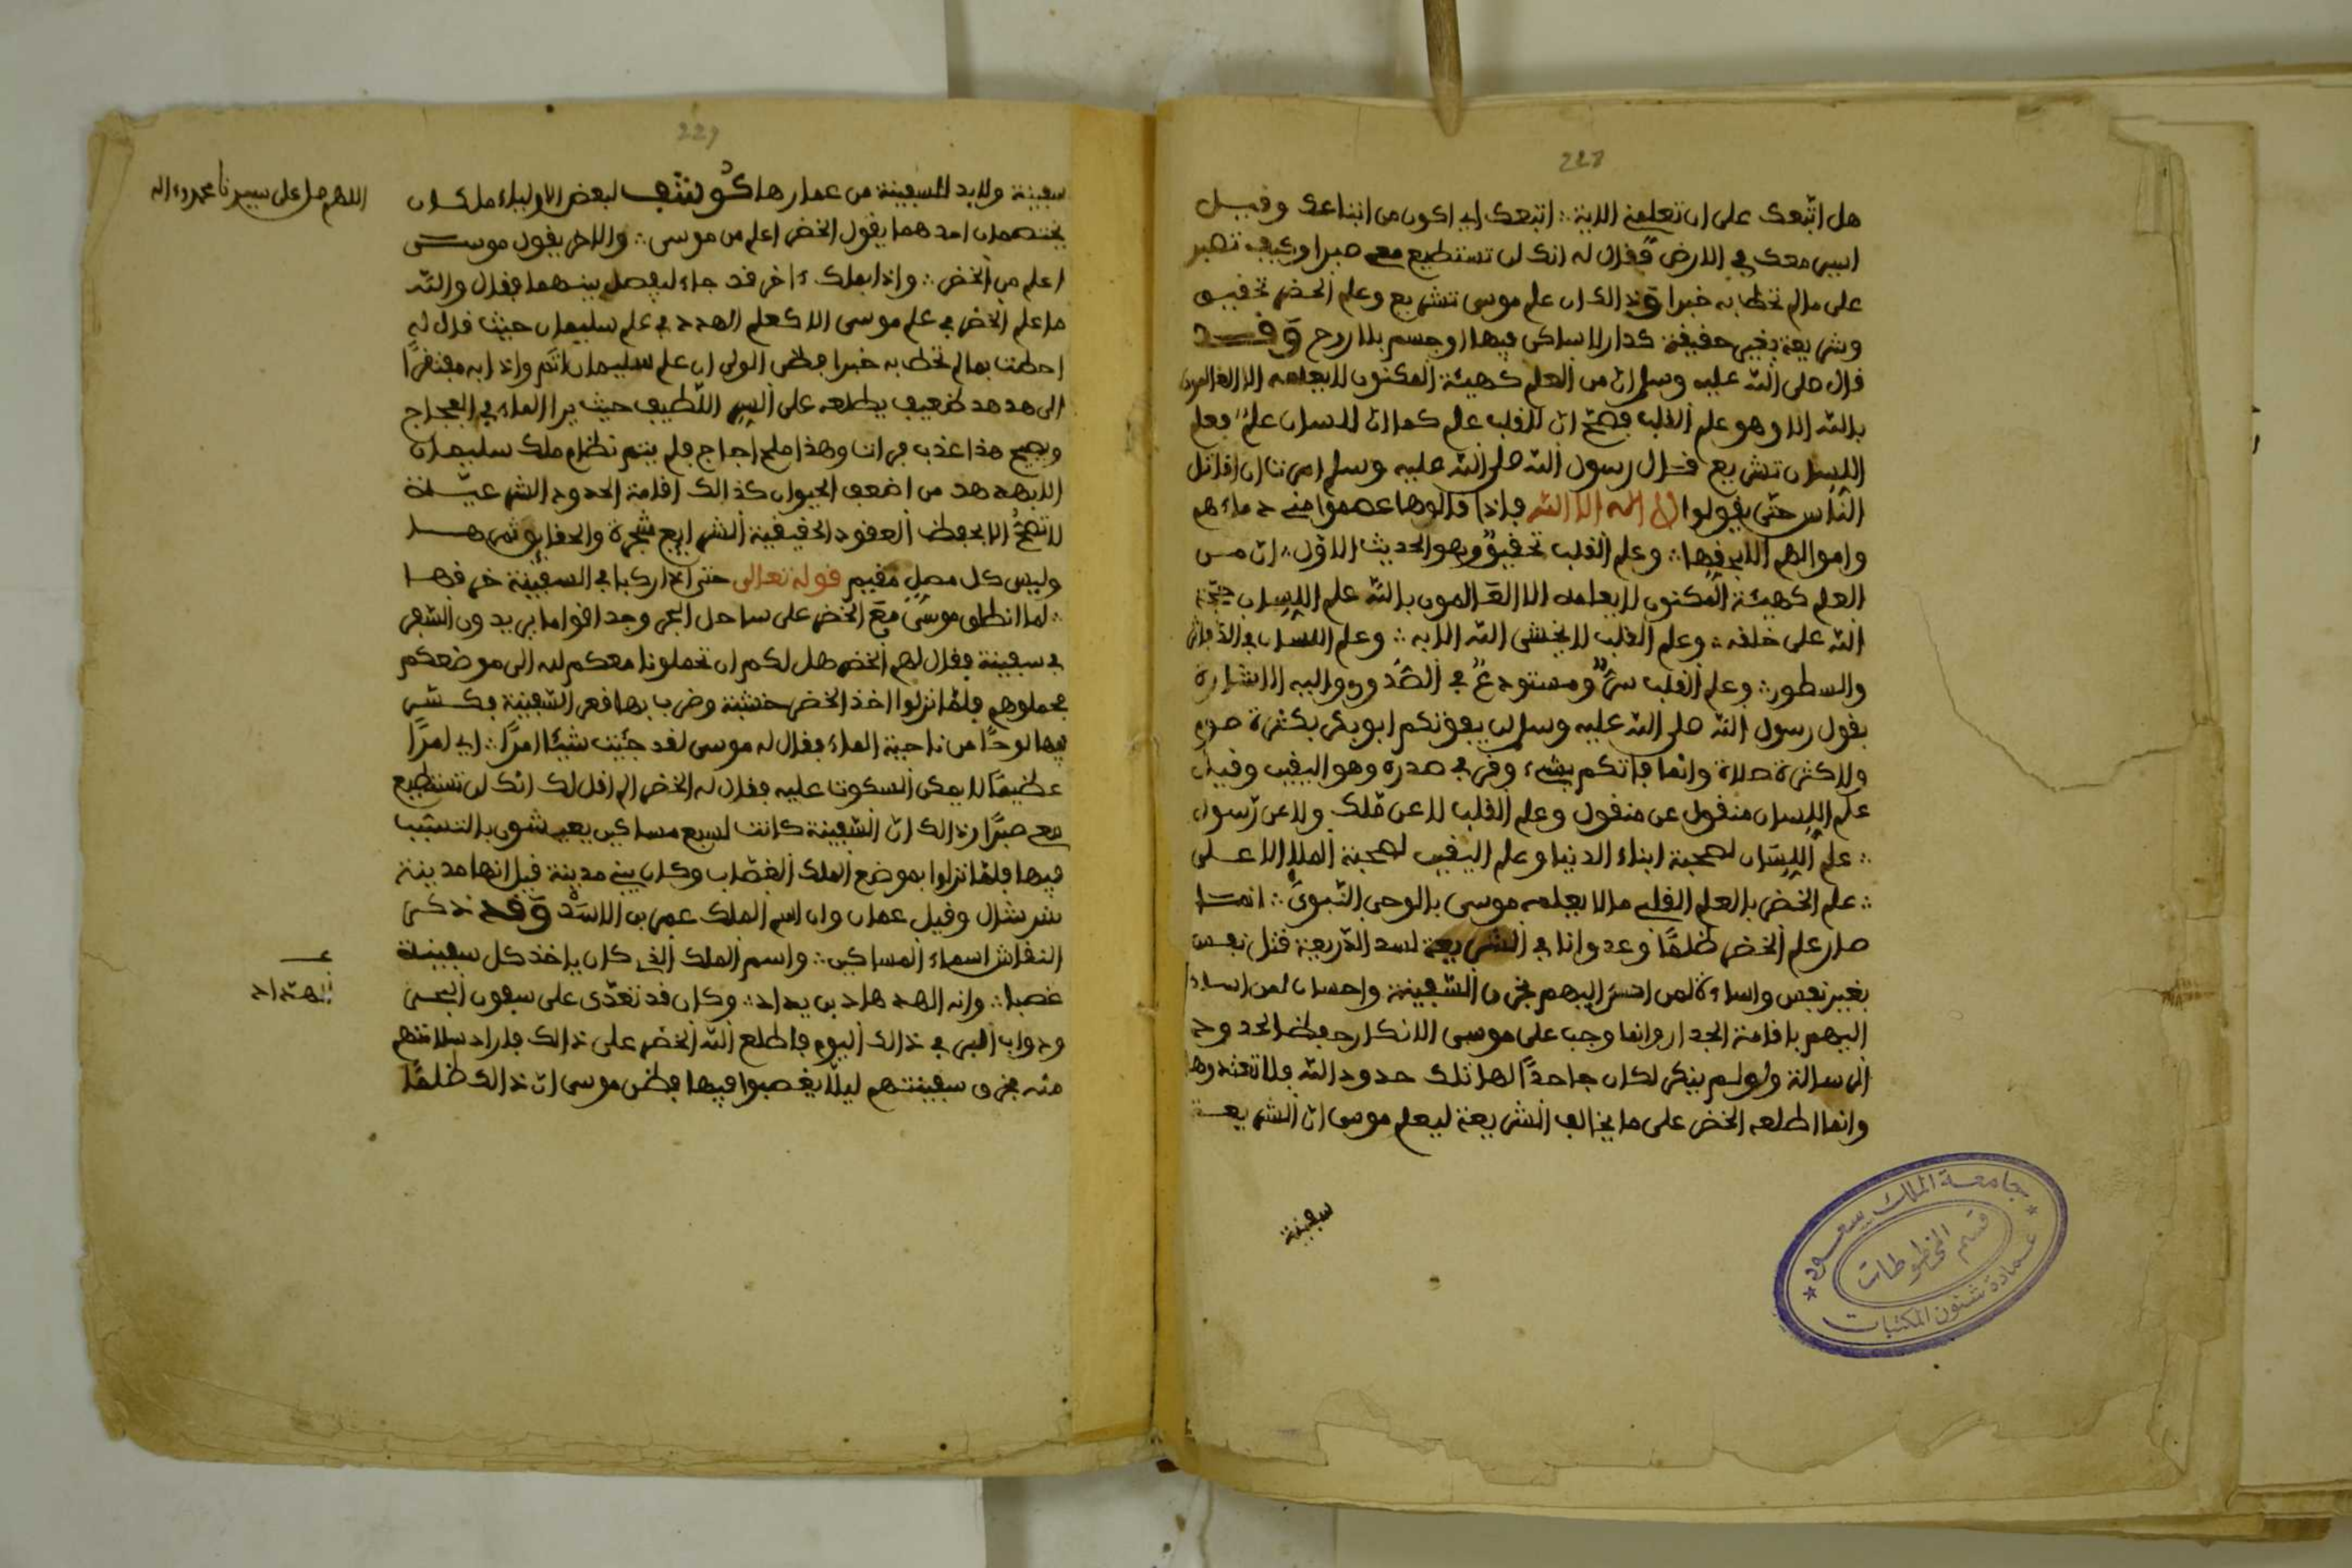 228
هل اتّبعك على ان تعلمني الاية ∴ اتبعك اي اكون من اتباعك وقيل
اسير معك في الارض فقال له انك لن تستطيع معي صبرا وكيف تصبر
على مالم تحط به خبرا وذالك ان علم موسى تشريع وعلم الخضر تحقيق
وشريعة بغير حقيقة كدار لا ساكن فيها او جسم بلا روح وقـد
قال صلى الله عليه وسلم ان من العلم كهيئة المكنون لا يعلمه الا العالمون
بالله الا وهو علم القلب فصحّ ان للقلب علم كما ان للسان علمٌ فعلم
اللسان تشريع قـال رسول الله صلى الله عليه وسلم امرنا ان اقاتل
النّاس حتّى يقولوا لا اله الا الله فإذا قالوها عصموا مني دماءهم
واموالهم الا بحقها ∴ وعلم القلب تحقيقٌ وهو الحديث الاوّل ∴ ان من
العلم كهيئة المكنون لا يعلمه الا العالمون بالله علم اللسان حجّة
الله على خلقه ∴ وعلم القلب لا يخشى الله الا به ∴ وعلم اللسان في
والسطور ∴ وعلم القلب سرٌّ ومستودعٌ في الصّدور واليه الاشارة
بقول رسول الله صلى الله عليه وسلم لن يفوتكم ابو بكر بكثرة صوم
ولا كثرة صلاة وانما فاتكم بشيء وقر في صدره وهو اليقين وقيل
علم اللسان منقول عن منقول وعلم القلب لا عن ملك ولا عن رّسول
∴ علم اللسان لصحبة ابناء الدنيا وعلم اليقين لصحبة الملإ الاعـلى
∴ علم الخضر بالعلم القلبي مالا يعلمه موسى بالوحي النّبويّ ∴ انمـا
صار علم الخضر ظلمًا وعدوانا في الشريعة لسد الذريعة قتل نفس
بغير نفس واساءة لمن احسن اليهم بخرق السّفينة واحسان لمن اساء
اليهم باقامة الجدار وانما وجب على موسى الانكار حفظ الحدود
الرسالة ولو لم ينكر لكان جاحدًا لها تلك حدود الله فلا تعتدوها
وانما اطلعه الخضر على ما يخالف الشريعة ليعلم موسى ان الشريعـة
سفينة
جامعة الملك سعود
قسم المخطوطات
عمادة شئون المكتبات
229
سفينة ولابد للسفينة من عمارها كوشف لبعض الاولياء ملكان
يختصمان احدهما يقول الخضر اعلم من موسى ∴ والاخر يقول موسـى
اعلم من الخضر ∴ واذا بملك ءاخر قد جاء ليفصل بينهما فقال والله
ما علم الخضر في علم موسى الا كعلم الهدهد في علم سليمان حيث قال له
احطت بمالم تحط به خبرا فظن الولي ان علم سليمان اتم واذا به مفتقرًا
الى هدهد ضعيف يطلعه على السر اللّطيف حيث يرا الماء في الفجاج
ويصيح هذا عذب فرات وهذا ملح اجاج فلم يتم نظام ملك سليمان
الا بهدهد من اضعف الحيوان كذالك اقامة الحدود الشرعيـة
لا تصحّ الا بحفظ العقود الحقيقية الشرايع شجرة والحقايق ثمرهـا
وليس كل مصل مقيم قوله تعالى حتى اذا ركبا في السفينة خرقهـا
∴ لما انطلق موسى مع الخضر على ساحل البحر وجد اقواما يريدون السّفر
في سفينة فقال لهم الخضر هل لكم ان تحملونا معكم لله الى موضعكم
فحملوهم فلمّا نزلوا اخذ الخضر خشبة وضرب بها قعر السّفينة فكـسر
فيها لوحًا من ناحية الماء فقال له موسى لقد جئت شيئا امرًا ∴ اي امرًا
عظيمًا لا يمكن السكوت عليه فقال له الخضر الم اقل لك انّك لن تستطيع
معي صبرًا وذالك ان السّفينة كانت لسبع مساكين يعيشون بالتسبّب
فيها فلمّا نزلوا بموضع الملك الغصّاب وكان بني مدينة قيل انها مدينة
شرشال وقيل عمان وان اسم الملك عمر بن الاسَدْ وقد ذكـر
النقاش اسماء المساكين ∴ واسم الملك الذي كان ياخذ كل سفينـة
غصبا ∴ وانه الهدهاد بن يداد ∴ وكان قد تعدّى على سفون البحـر
ودواب البر في ذالك اليوم فاطلع الله الخضر على ذالك فاراد سلامتهم
منه فخرق سفينتهم ليلّا يغصبوا فيها فظن موسى ان ذالك ظلمًا
اللهم صل على سيدنا محمد وءاله